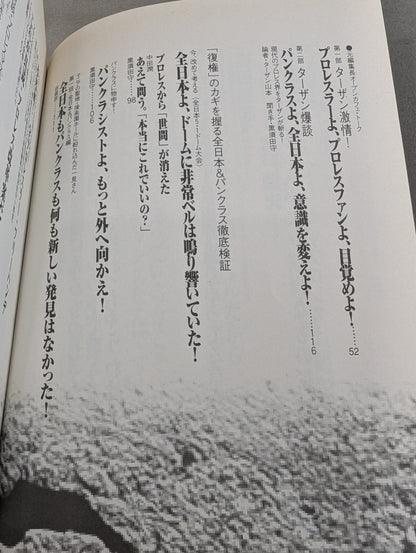 ●元編集長オープン・カフェトーク
第一部 ターザン激情!
プロレスラーよ、プロレスファンよ、目覚めよ!……52
第二部 ターザン爆談
パンクラスよ、全日本よ、意識を変えよ!……116
現代のプロレス界をターザンが斬る!
論者・ターザン山本 聞き手・黒須田守
「復権」のカギを握る全日本&パンクラス徹底検証
今、改めて考える〈全日本5・1ドーム大会〉
全日本よ、ドームに非常ベルは鳴り響いていた!
中田潤
プロレスから「世間」が消えた
あえて問う。「本当にこれでいいの?」
黒須田守……98
パンクラスに物申す!
パンクラシストよ、もっと外へ向かえ!
黒須田守……106
全日本もパンクラスも何も新しい発見はなかった!